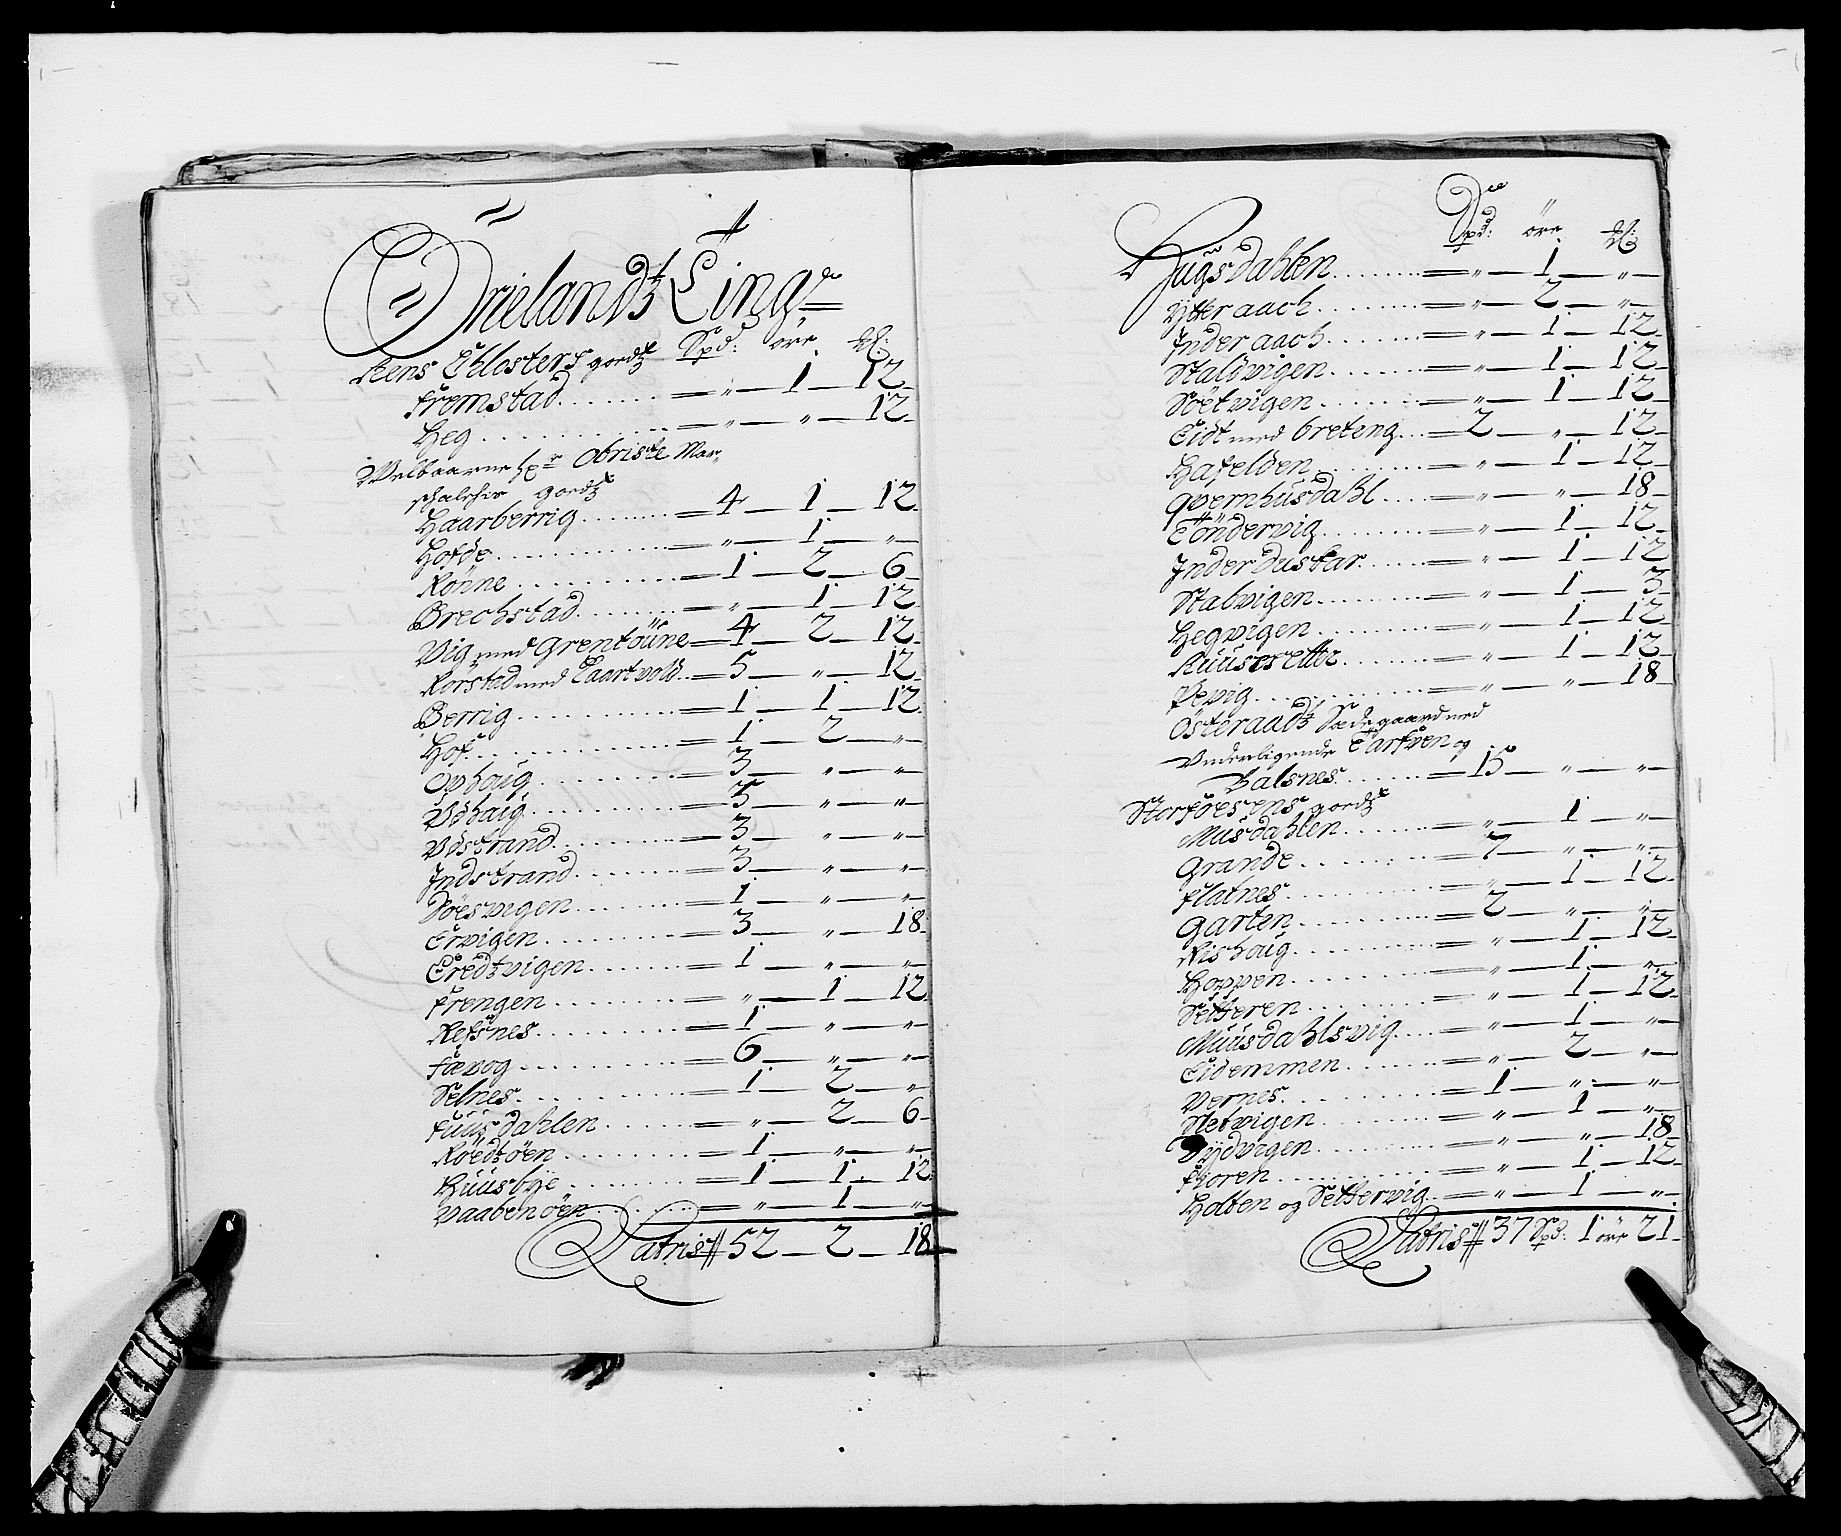 Ørielandtz Ting
Rens Closters goedtz Spd: öre ʠ:
Fremstad = „ — 1 — 12
Heg = „ — „ — 12
Welbaarne Hr Obriste Mar-
schalchs goedtz
Haarberrig = 4 — 1 — 12
Hofde = „ — 1 — „
Rönne = 1 — 2 — 6
Brechstad = „ — 1 — 12
Vig med Grentöüne = 4 — 2 — 12
Rorstad med Taartvold = 5 — „ — 12
Berrig = 1 — 1 — 12
Hof = 1 — 2 — „
Ophaüg = 3 — „ — „
Udhaüg = 5 — „ — „
Udstrand = 3 — „ — „
Indstrand = 3 — „ — „
Döesvigen = 1 — „ — „
Ervigen = 3 — „ — 18
Bredtvigen = 1 — „ — „
Frengen = „ — 1 — 12
Refsnes = 1 — „ — „
Fævog = 6 — „ — „
Selnes = 1 — 2 — „
Fuusdahlen = „ — 2 — 6
Röedtöen = 1 — „ — „
Huusbÿe = 1 — 1 — 12
Vaabenöen = „ — 1 — „
Latris 52 — 2 — 18
Spd: öre ʠ:
Hugsdahlen = „ — 1 — „
Ytteraach = „ — 2 — „
Inderaach = „ — 1 — 12
Staldvigen = „ — 1 — 12
Söetvigen = „ — 1 — 12
Eidt med Breteng = 2 — „ — 12
Hafelden = „ — 1 — 12
Qvernhusdahl = „ — „ — 18
Töndervig = „ — 1 — 12
Inder Duskar = „ — 1 — 12
Stabvigen = „ — 1 — 3
Hegvigen = „ — 1 — 12
Ruusetter = „ — 1 — 12
Pevig = „ — „ — 18
Österaadtz Sædegaard med
Underligende Tarfven og
Balsnes = 15 — „ — „
Storföesens goedtz
Musdahlen = „ — 1 — „
Grande = 7 — „ — „
Flatnes = „ — 1 — 12
Garten = 2 — „ — „
Rishaug = „ — 1 — 12
Hoppen = „ — 1 — „
Setteren = „ — 1 — 12
Muusdahlsvig = „ — 1 — „
Eidemmen = „ — 2 — „
Vernes = 1 — „ — „
Stetvigen = „ — 1 — „
Dÿdvigen = „ — „ — 18
Fioren = „ — 1 — 12
Holten og Settervig = „ — 1 — „
Latris 37 Spd: 1 öre 21